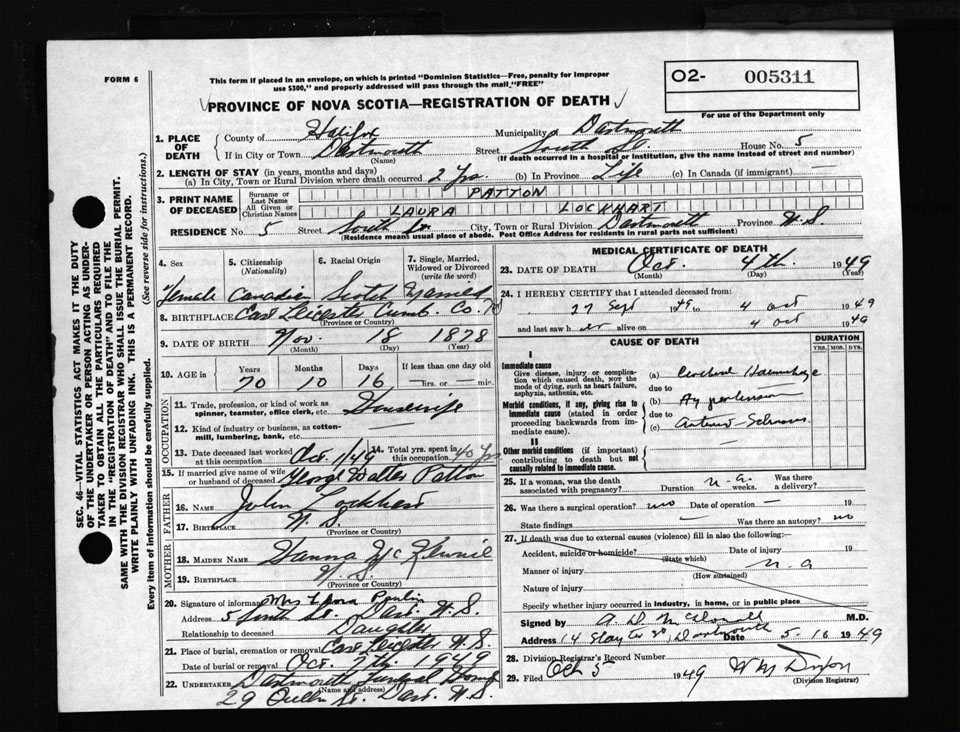 FORM 6
This form if placed in an envelope, on which is printed "Dominion Statistics—Free, penalty for improper
use $300," and properly addressed will pass through the mail "FREE"
O2- 005311
For use of the Department only
PROVINCE OF NOVA SCOTIA—REGISTRATION OF DEATH
1. PLACE OF DEATH County of Halifax Municipality Dartmouth
If in City or Town Dartmouth Street South St. House No. 5
(Name) (If death occurred in a hospital or institution, give the name instead of street and number)
2. LENGTH OF STAY (in years, months and days)
(a) In City, Town or Rural Division where death occurred 2 Yrs. (b) In Province Life (c) In Canada (if immigrant)
3. PRINT NAME OF DECEASED Surname or Last Name PATTON
All Given or Christian Names LAURA LOCKHART
RESIDENCE No. 5 Street South St. City, Town or Rural Division Dartmouth Province N.S.
(Residence means usual place of abode. Post Office Address for residents in rural parts not sufficient)
4. Sex 5. Citizenship (Nationality) 6. Racial Origin 7. Single, Married, Widowed or Divorced (write the word)
Female Canadian Scotch Married
8. BIRTHPLACE East Leicester Cumb. Co. N
(Province or Country)
9. DATE OF BIRTH Nov. 18 1878
(Month) (Day) (Year)
10. AGE in Years Months Days If less than one day old
70 10 16 —hrs. or — min.
OCCUPATION
11. Trade, profession, or kind of work as spinner, teamster, office clerk, etc. Housewife
12. Kind of industry or business, as cotton-mill, lumbering, bank, etc. —
13. Date deceased last worked at this occupation Oct. 1/49 14. Total yrs. spent in this occupation 40 Yrs
15. If married give name of wife or husband of deceased George Walter Patton
FATHER
16. Name John Lockhart
17. Birthplace N.S.
(Province or Country)
MOTHER
18. MAIDEN NAME Hanna
19. BIRTHPLACE N.S.
(Province or Country)
20. Signature of informant Mrs
Address 5 South St. Dart. N.S.
Relationship to deceased Daughter
21. Place of burial, cremation or removal East Leicester N.S.
Date of burial or removal Oct. 7th 1949
22. UNDERTAKER Dartmouth Funeral Home
(Name and address)
29 Queen St. Dart. N.S.
MEDICAL CERTIFICATE OF DEATH
23. DATE OF DEATH Oct. 4th 1949
(Month) (Day) (Year)
24. I HEREBY CERTIFY that I attended deceased from:
27 Sept 49 to 4 Oct 1949
and last saw her alive on 4 Oct 1949
CAUSE OF DEATH DURATION
YRS. MOS. DYS.
I
Immediate cause
Give disease, injury or complication which caused death, NOT the mode of dying, such as heart failure, asphyxia, asthenia, etc.
(a) Cerebral Haemorrhage
due to
Morbid conditions, if any, giving rise to immediate cause (stated in order proceeding backwards from immediate cause).
(b) Hypertension
due to
(c)
II
Other morbid conditions (if important) contributing to death but not causally related to immediate cause.
25. If a woman, was the death associated with pregnancy? Duration n.a. weeks. Was there a delivery?
26. Was there a surgical operation? no Date of operation — 19
State findings — Was there an autopsy? no
27. If death was due to external causes (violence) fill in also the following:
Accident, suicide or homicide? Date of injury 19
(State which)
Manner of injury n.a
(How sustained)
Nature of injury
Specify whether injury occurred in industry, in home, or in public place
Signed by M.D.
Address 14 Dartmouth Date 5-10 1949
28. Division Registrar's Record Number
29. Filed Oct 5 1949
(Division Registrar)
SEC. 46—VITAL STATISTICS ACT MAKES IT THE DUTY
OF THE UNDERTAKER OR PERSON ACTING AS UNDERTAKER TO OBTAIN ALL THE PARTICULARS REQUIRED
IN THE "REGISTRATION OF DEATH" AND TO FILE THE
SAME WITH THE DIVISION REGISTRAR WHO SHALL ISSUE THE BURIAL PERMIT.
WRITE PLAINLY WITH UNFADING INK. THIS IS A PERMANENT RECORD.
Every item of information should be carefully supplied. (See reverse side for instructions.)